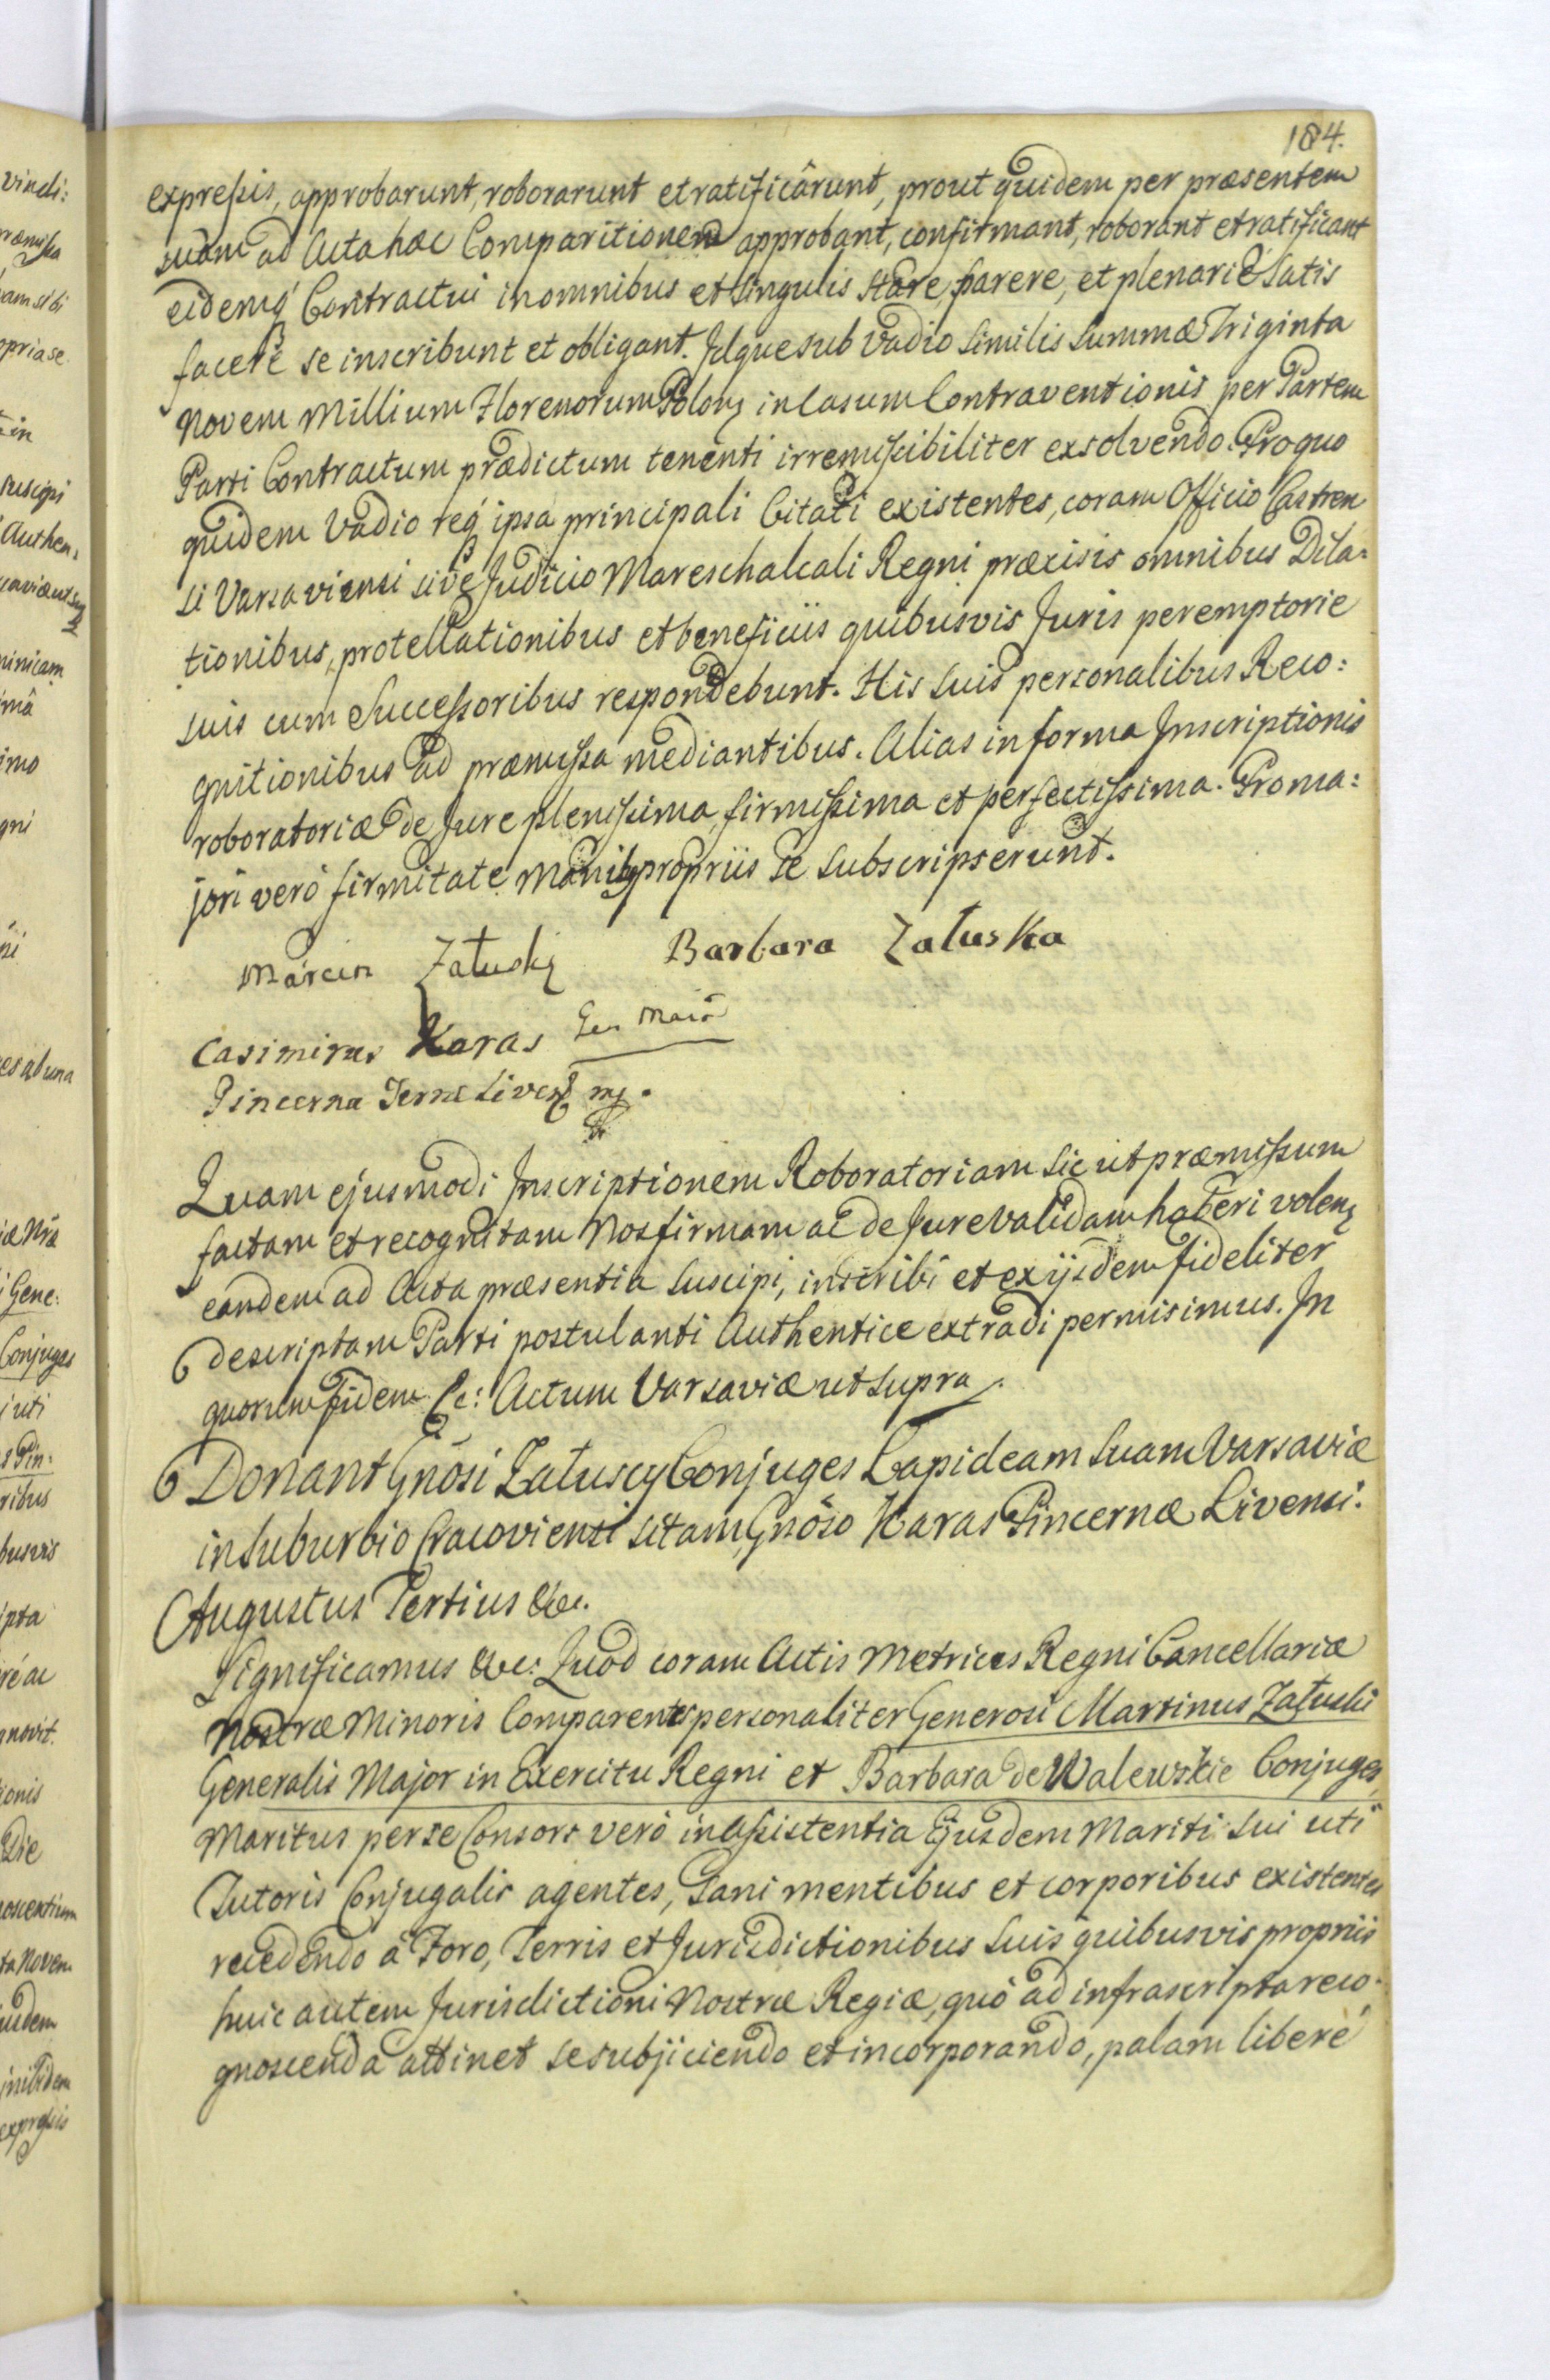 184.
expressis, approbarunt, roborarunt et ratificârunt, prout quidem per præsentem
suam ad Acta hæc Comparitionem approbant, confirmant, roborant et ratificant
eidemq́ Contractui in omnibus et singulis stare, parere, et plenarié satis
facere se inscribunt et obligant. Idque sub vadio similis summæ Triginta
Novem Millium Florenorum Polon in Casum Contraventionis per Partem
Parti Contractum prædictum tenenti irremissibiliter exsolvendo. Pro quo
quidem Vadio req́ ipsa principali Citati existentes, coram Officio Castren
si Varsaviensi sive Judicio Mareschalcali Regni præcisis omnibus Dila:
tionibus, protellationibus et beneficiis quibusvis Juris peremptorie
suis cum Successoribus respondebunt. His suis personalibus Reco:
gnitionibus ad præmissa mediantibus. Alias in forma Inscriptionis
roboratoriæ de Jure plenissima, firmissima et perfectissima. Pro ma:
jori veró firmitate Manibq propriis se subscripserunt.
Márcin Załuskį Barbara Załuska
Casimirus Karas Gen Maiõ
Pincerna Terræ Liven mp.
Quam ejusmodi Inscriptionem Roboratoriam sic ut præmissum
factam et recognitam Nos firmam ac de Jure validam haberi volen
eandem ad Acta præsentia suscipi, inscribi et ex ijsdem fideliter
descriptam Parti postulanti Authentice extradi permisimus. In
quorum fidem &c: Actum Varsaviæ ut supra.
Donant Gñosi Załuscy Conjuges Lapideam suam Varsaviæ
in suburbio Cracoviensi sitam, Gñoso Karas Pincernæ Livensi.
Augustus Tertius &c.
Significamus &c: Quod coram Actis Metrices Regni Cancellariæ
Nostræ Minoris Comparentes personaliter Generosi Martinus Załuski
Generalis Major in Exercitu Regni et Barbara de Walewskie Conjuges,
Maritus per se Consors veró in assistentia Ejusdem Mariti sui uti
Tutoris Conjugalis agentes, sani mentibus et corporibus existentes
recedendo á Foro, Terris et Jurisdictionibus suis quibusvis propriis
huic autem Jurisdictioni Nostræ Regiæ, quó ad infrascripta reco:
gnoscenda attinet se subjiciendo et incorporando, palam liberé